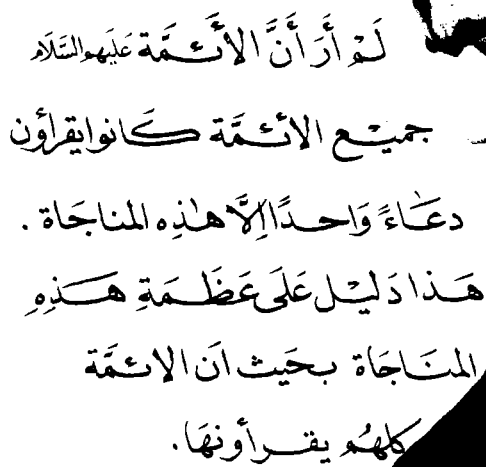 لَمْ أَرَ أَنَّ الأَئِمَّة عَلَيهم السَّلَام
جميع الائمَّة كَانوا يقرأون
دعَاءً وَاحدًا إلَّا هٰذِه المناجَاة .
هَذا دَليل عَلَى عَظَمَةِ هَذِهِ
المنَاجَاة بحَيث ان الائمَّة
كلهُم يقرأونهَا.